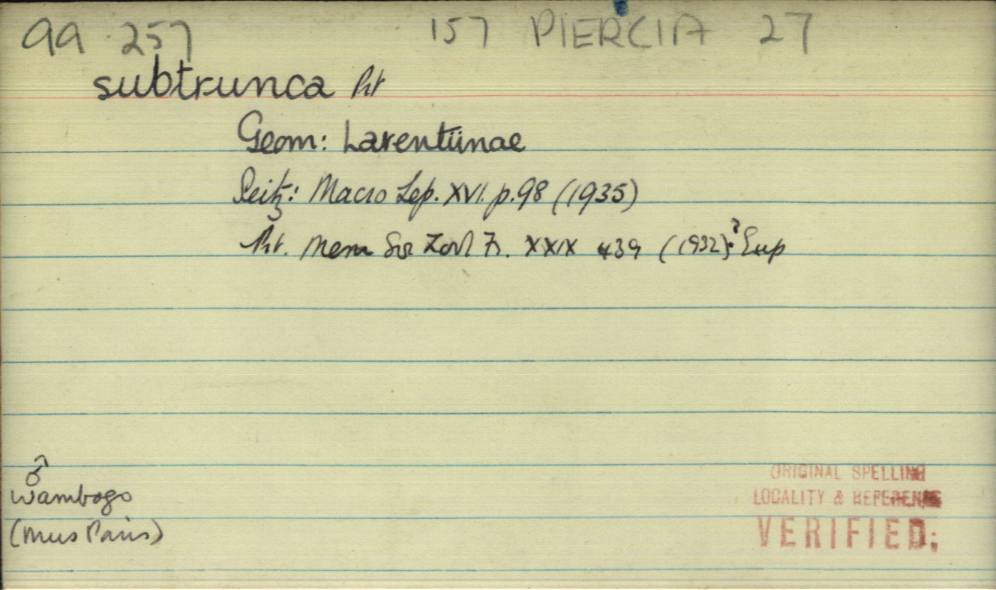 99 257 157 PIERCIA 27
subtrunca Prt
Geom: Larentiinae
Seitz: Macro Lep. XVI. p.98 (1935)
Prt. Mem Soc Zool Fr. XXIX 439 (1932): ? Eup
♂
Wambogo
(Mus Paris)
ORIGINAL SPELLING
LOCALITY & REFERENCE
VERIFIED: